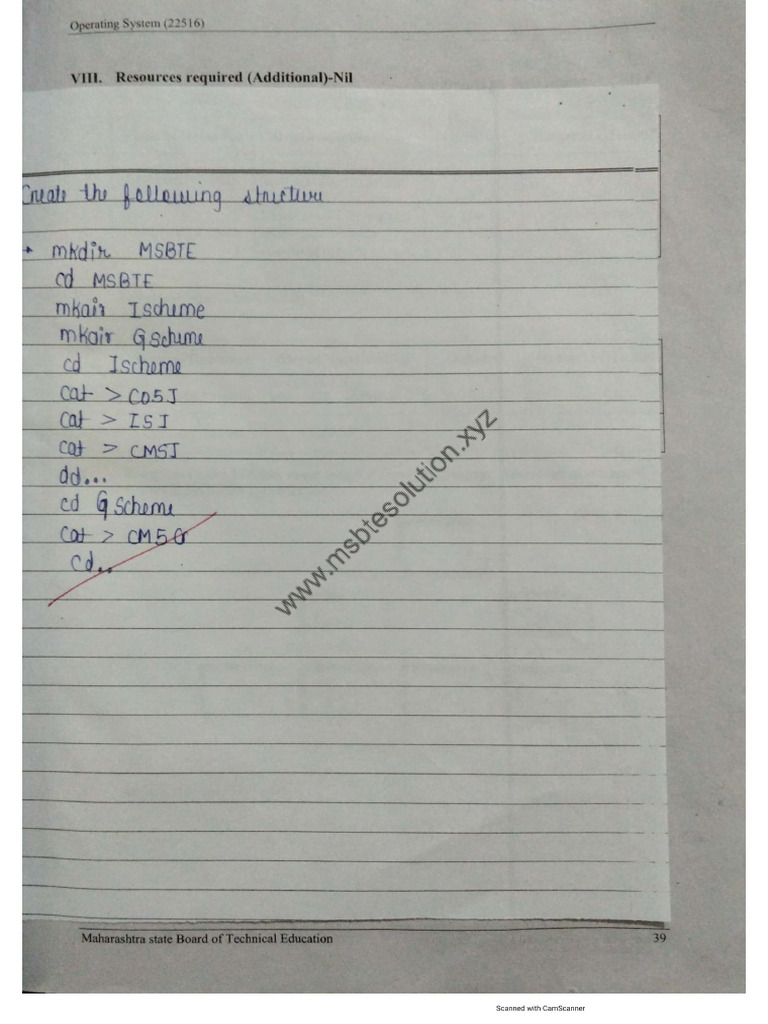 Operating System (22516)
VIII. Resources required (Additional)-Nil
Create the following structure
mkdir MSBTE
cd MSBTE
mkair Ischeme
mkair Gscheme
cd Ischeme
cat > CO5I
cat > IS I
cat > CM5I
dd...
cd G Scheme
cat > CM5G
cd..
www.msbtesolution.xyz
Maharashtra state Board of Technical Education 39
Scanned with CamScanner